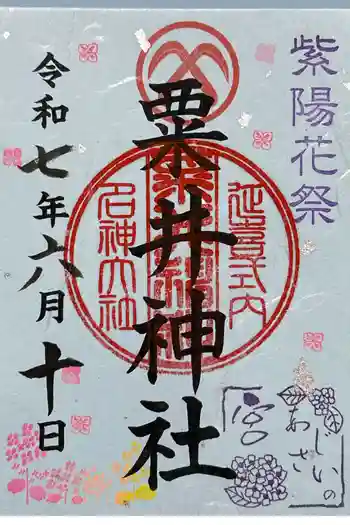 紫陽花祭
粟井神社
延喜式内
名神大社
令和七年六月十日
あじさいの宮